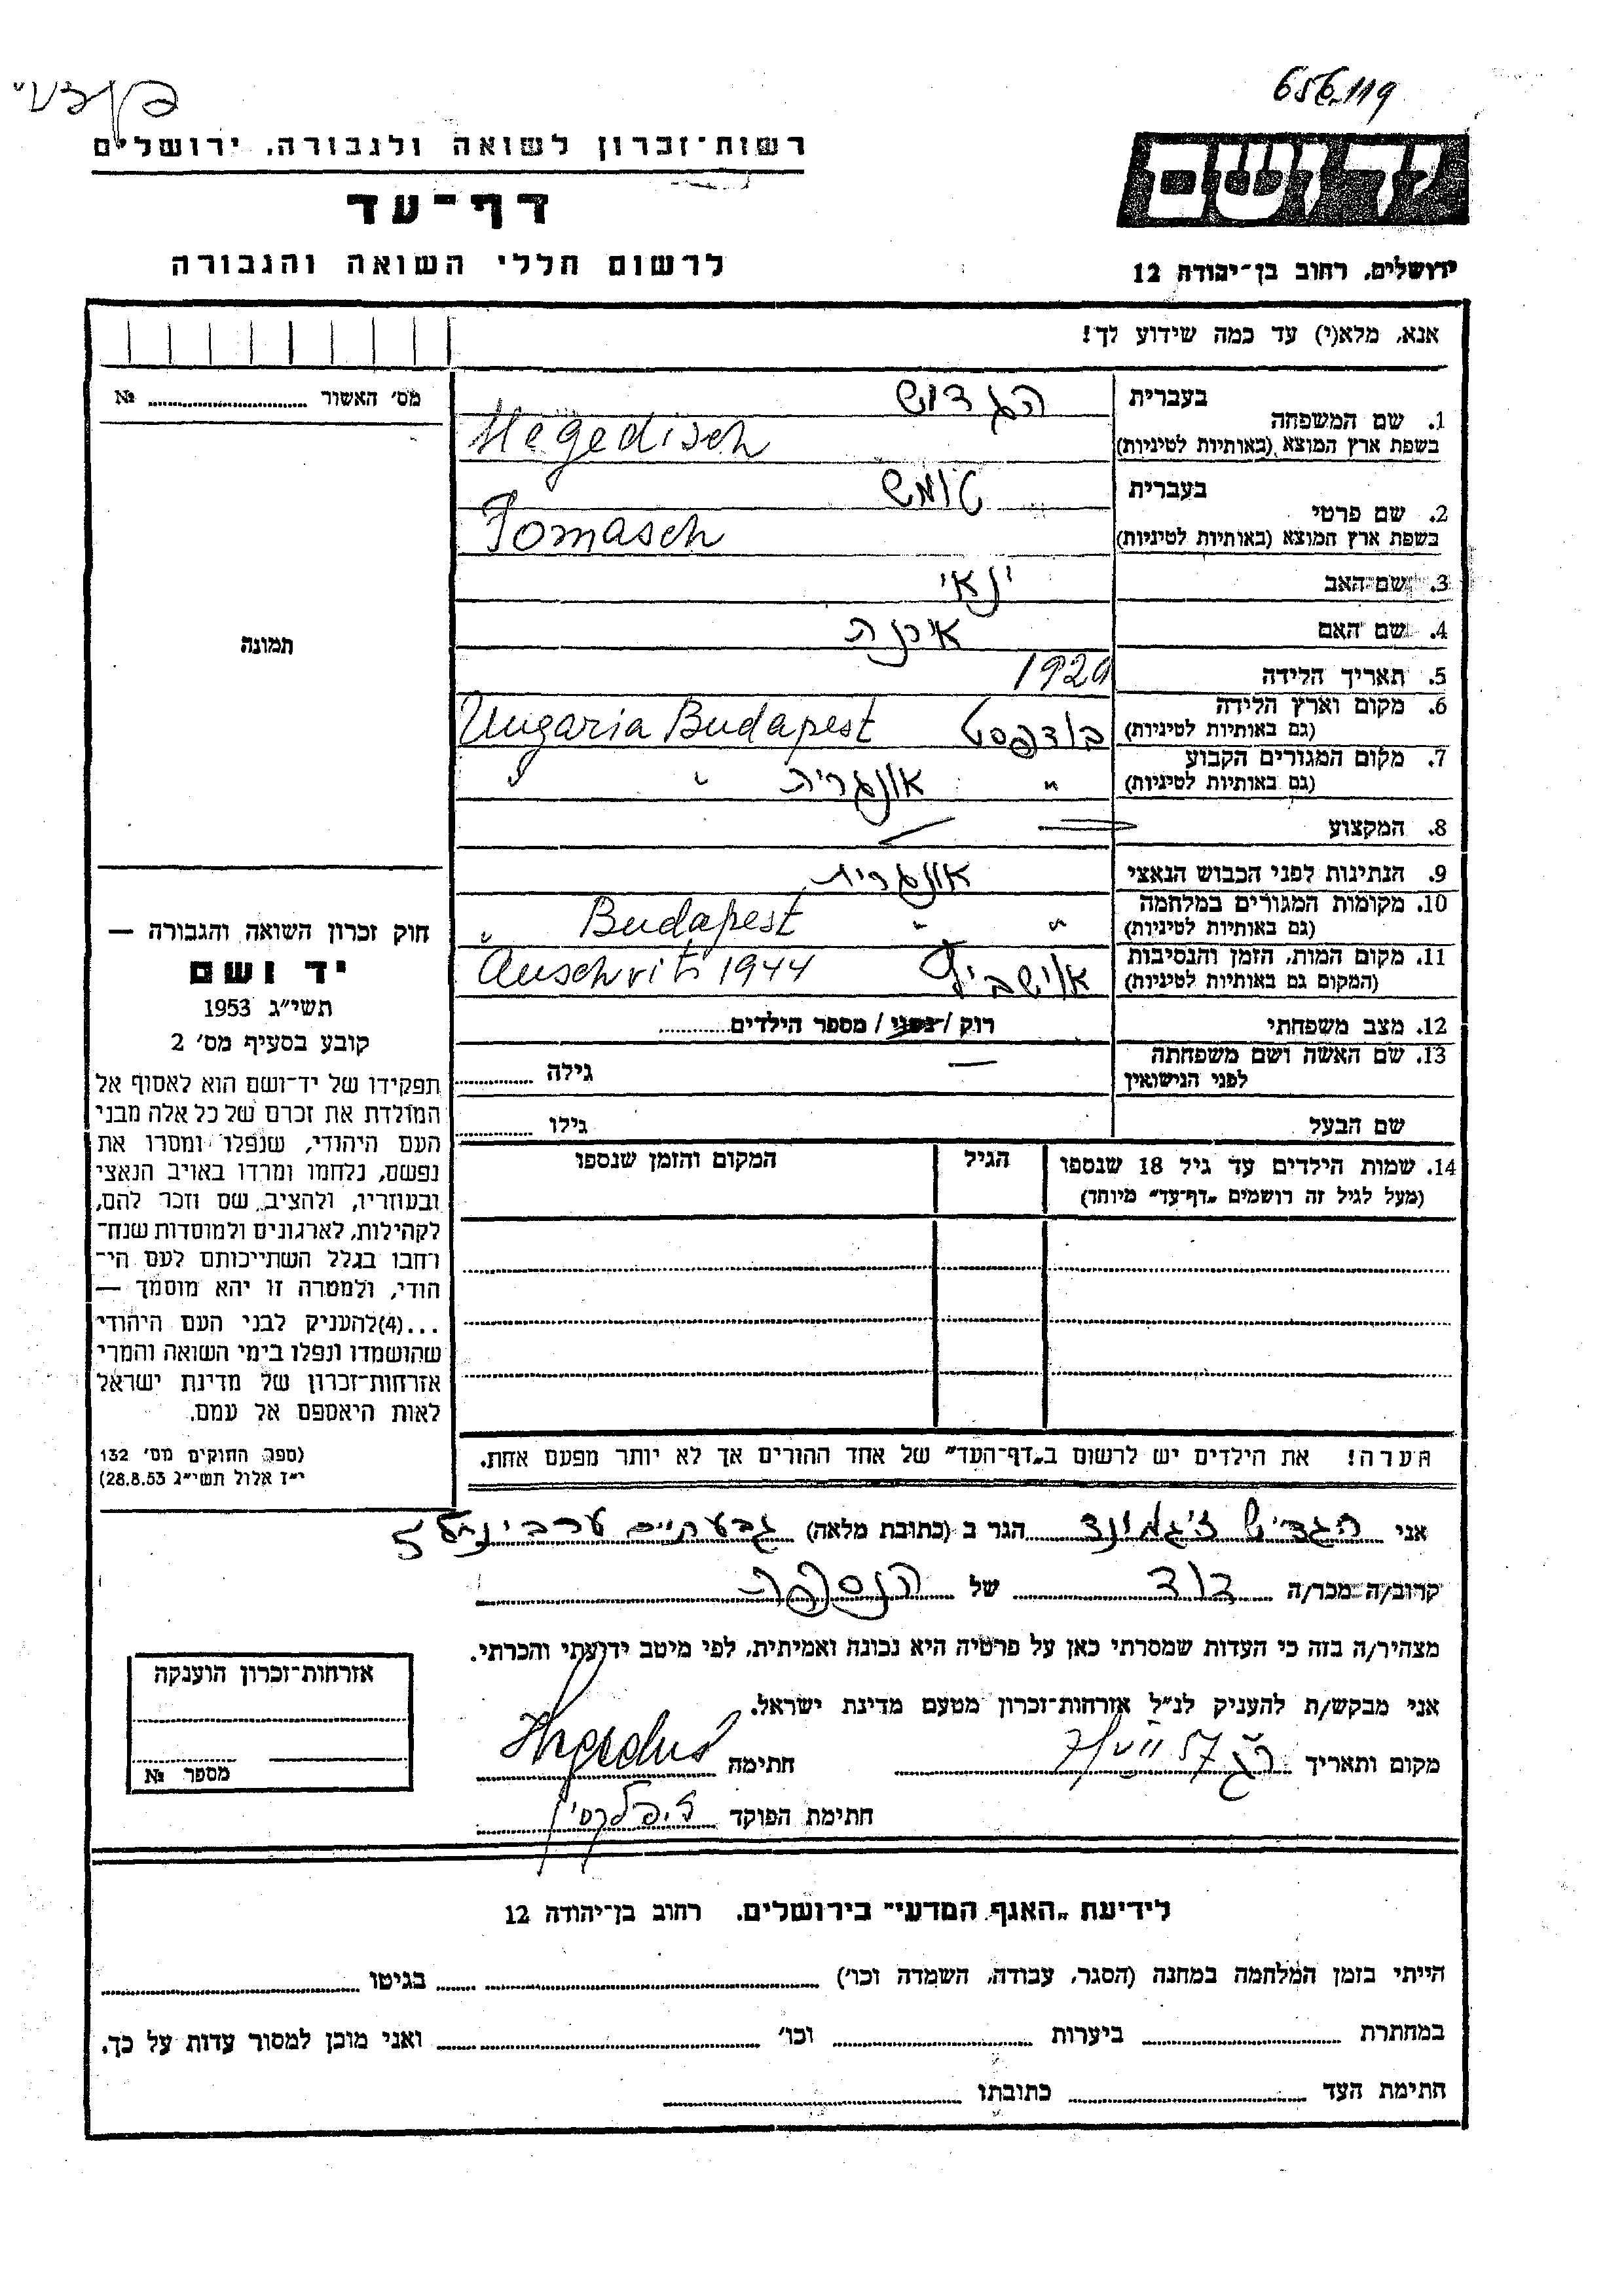 656119
רשות־זכרון לשואה ולגבורה, ירושלים
יד ושם
דף־עד
לרשום חללי השואה והגבורה
ירושלים, רחוב בן־יהודה 12
אנא, מלא(י) עד כמה שידוע לך!
מס׳ האשור № 
1. שם המשפחה בעברית הגדוש
בשפת ארץ המוצא (באותיות לטיניות) Hegedisch
2. שם פרטי בעברית טומש
בשפת ארץ המוצא (באותיות לטיניות) Tomasch
3. שם האב ינאי
4. שם האם אירנה
5. תאריך הלידה
6. מקום וארץ הלידה (גם באותיות לטיניות) בודפסט Ungaria Budapest
7. מקום המגורים הקבוע (גם באותיות לטיניות) " אונגריה " "
8. המקצוע —
9. הנתינות לפני הכבוש הנאצי אונגרית
10. מקומות המגורים במלחמה (גם באותיות לטיניות) " " Budapest "
11. מקום המות, הזמן והנסיבות (המקום גם באותיות לטיניות) אוישביץ Auschvits 1944
12. מצב משפחתי רוק / נשוי / מספר הילדים
13. שם האשה ושם משפחתה לפני הנישואין — גילה
שם הבעל גילו
14. שמות הילדים עד גיל 18 שנספו (מעל לגיל זה רושמים „דף־עד״ מיוחד) הגיל המקום והזמן שנספו
תמונה
חוק זכרון השואה והגבורה —
יד ושם
תשי״ג 1953
קובע בסעיף מס׳ 2
תפקידו של יד־ושם הוא לאסוף אל
המולדת את זכרם של כל אלה מבני
העם היהודי, שנפלו ומסרו את
נפשם, נלחמו ומרדו באויב הנאצי
ובעוזריו, ולהציב שם וזכר להם,
לקהילות, לארגונים ולמוסדות שנח־
רבו בגלל השתייכותם לעם הי־
הודי, ולמטרה זו יהא מוסמך —
...(4)להעניק לבני העם היהודי
שהושמדו ונפלו בימי השואה והמרי
אזרחות־זכרון של מדינת ישראל
לאות היאספם אל עמם.
(ספר החוקים מס׳ 132
י״ז אלול תשי״ג 28.8.53)
הערה! את הילדים יש לרשום ב„דף־העד״ של אחד ההורים אך לא יותר מפעם אחת.
אני הגדיש זיגמונד הגר ב (כתובת מלאה) גבעתיים 5
קרוב/ה מכר/ה דוד של הנספה
מצהיר/ה בזה כי העדות שמסרתי כאן על פרטיה היא נכונה ואמיתית, לפי מיטב ידיעתי והכרתי.
אני מבקש/ת להעניק לנ״ל אזרחות־זכרון מטעם מדינת ישראל.
מקום ותאריך חתימה Hegedus
חתימת הפוקד
אזרחות־זכרון הוענקה
מספר №
לידיעת „האגף המדעי״ בירושלים, רחוב בן־יהודה 12
הייתי בזמן המלחמה במחנה (הסגר, עבודה, השמדה וכו׳) בגיטו
במחתרת ביערות וכו׳ ואני מוכן למסור עדות על כך.
חתימת העד כתובתו